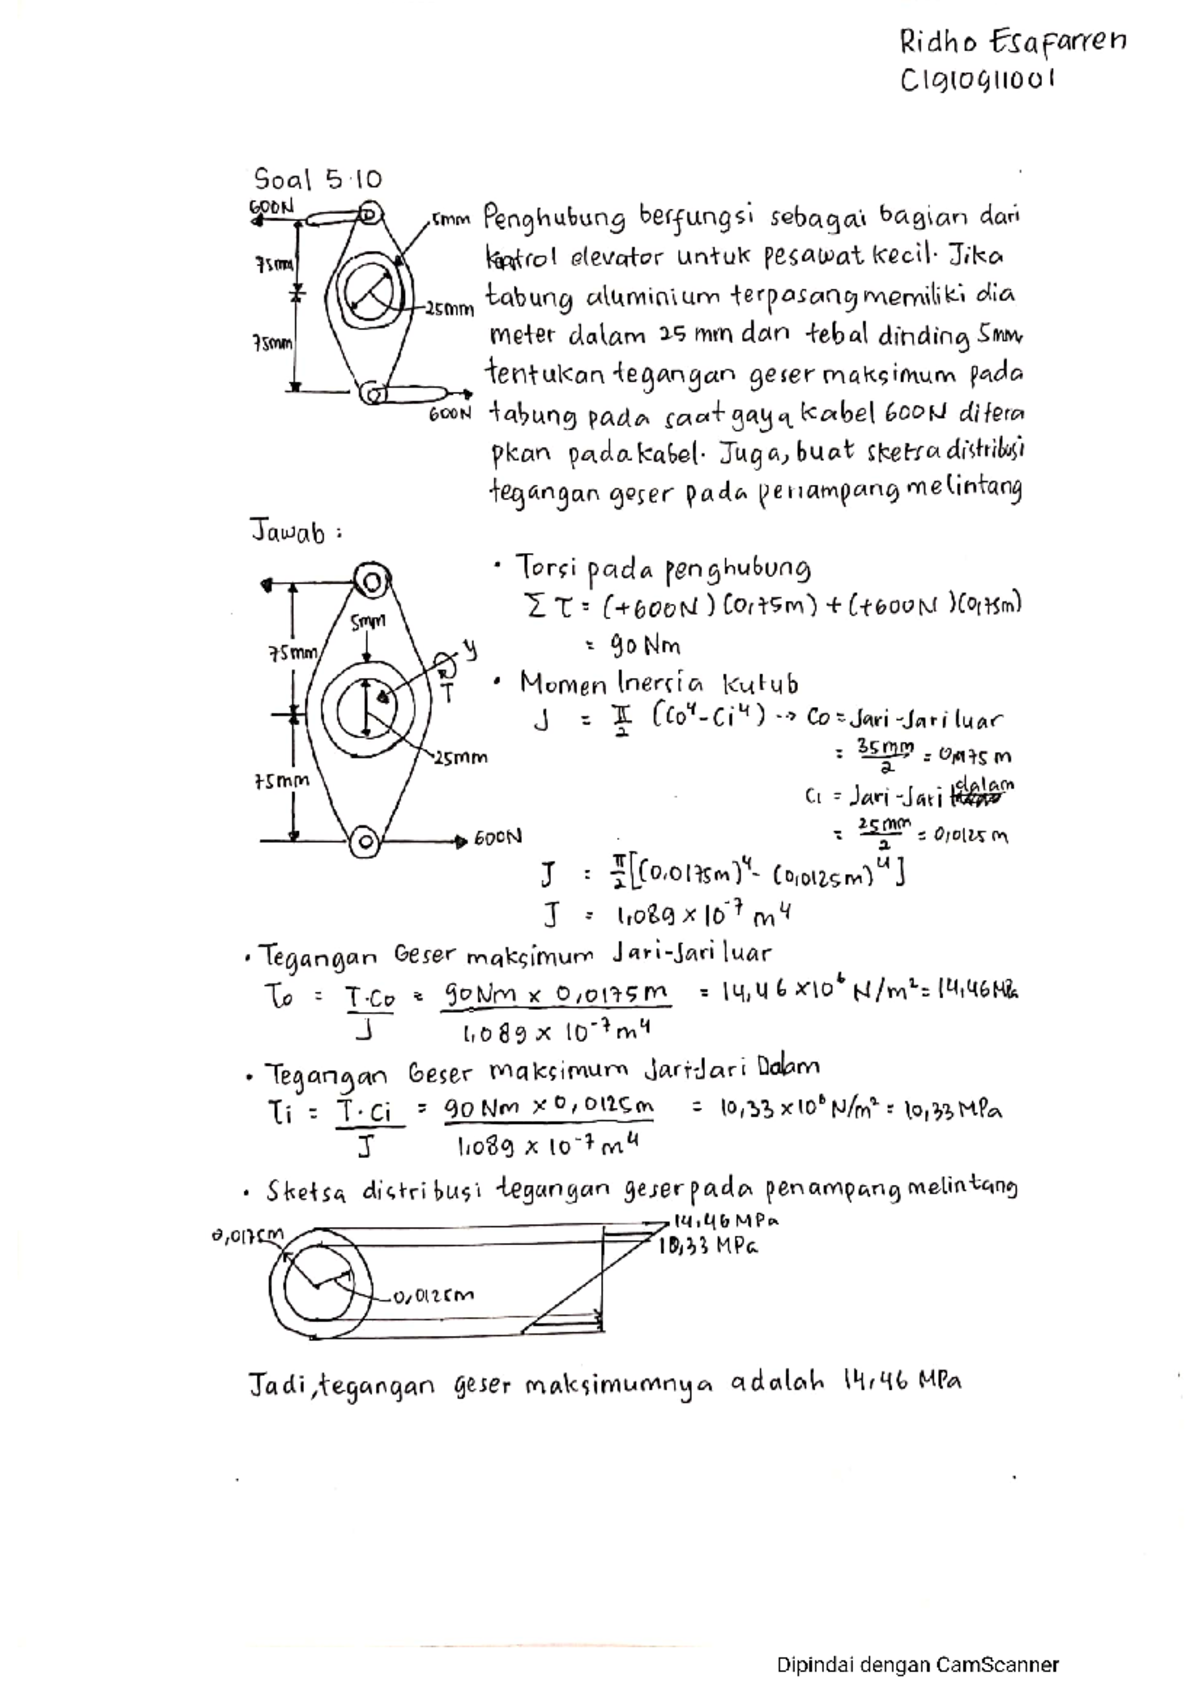 Ridho Esafarren
C1910911001
Soal 5.10
600N
5mm
75mm
25mm
75mm
600N
Penghubung berfungsi sebagai bagian dari
kontrol elevator untuk pesawat kecil. Jika
tabung aluminium terpasang memiliki dia
meter dalam 25 mm dan tebal dinding 5mm,
tentukan tegangan geser maksimum pada
tabung pada saat gaya kabel 600N ditera
pkan pada kabel. Juga, buat sketsa distribusi
tegangan geser pada penampang melintang
Jawab :
5mm
75mm
y
T
25mm
75mm
600N
• Torsi pada penghubung
Σ τ = (+600N) (0,75m) + (+600N) (0,75m)
= 90 Nm
• Momen Inersia Kutub
J = π/2 (Co⁴ - Ci⁴) --> Co = Jari-Jari luar
= 35mm/2 = 0,0175 m
Ci = Jari-Jari dalam
= 25mm/2 = 0,0125 m
J = π/2 [(0,0175m)⁴ - (0,0125m)⁴]
J = 1,089 × 10⁻⁷ m⁴
• Tegangan Geser maksimum Jari-Jari luar
τo = T.Co/J = 90Nm × 0,0175m / 1,089 × 10⁻⁷ m⁴ = 14,46 ×10⁶ N/m² = 14,46 MPa
• Tegangan Geser maksimum Jari-Jari Dalam
τi = T.Ci/J = 90 Nm × 0,0125m / 1,089 × 10⁻⁷ m⁴ = 10,33 ×10⁶ N/m² = 10,33 MPa
• Sketsa distribusi tegangan geser pada penampang melintang
0,0175m
14,46 MPa
10,33 MPa
0,0125m
Jadi, tegangan geser maksimumnya adalah 14,46 MPa
Dipindai dengan CamScanner